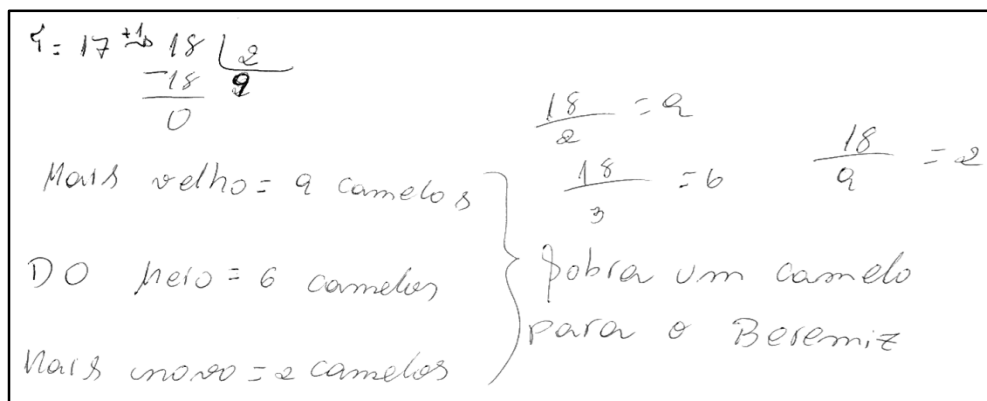 T = 17 +1→ 18 | 2
-18 9
0
18/2 = 9
18/3 = 6
18/9 = 2
Mais velho = 9 camelos
Do meio = 6 camelos
Mais novo = 2 camelos
Sobra um camelo
para o Beremiz